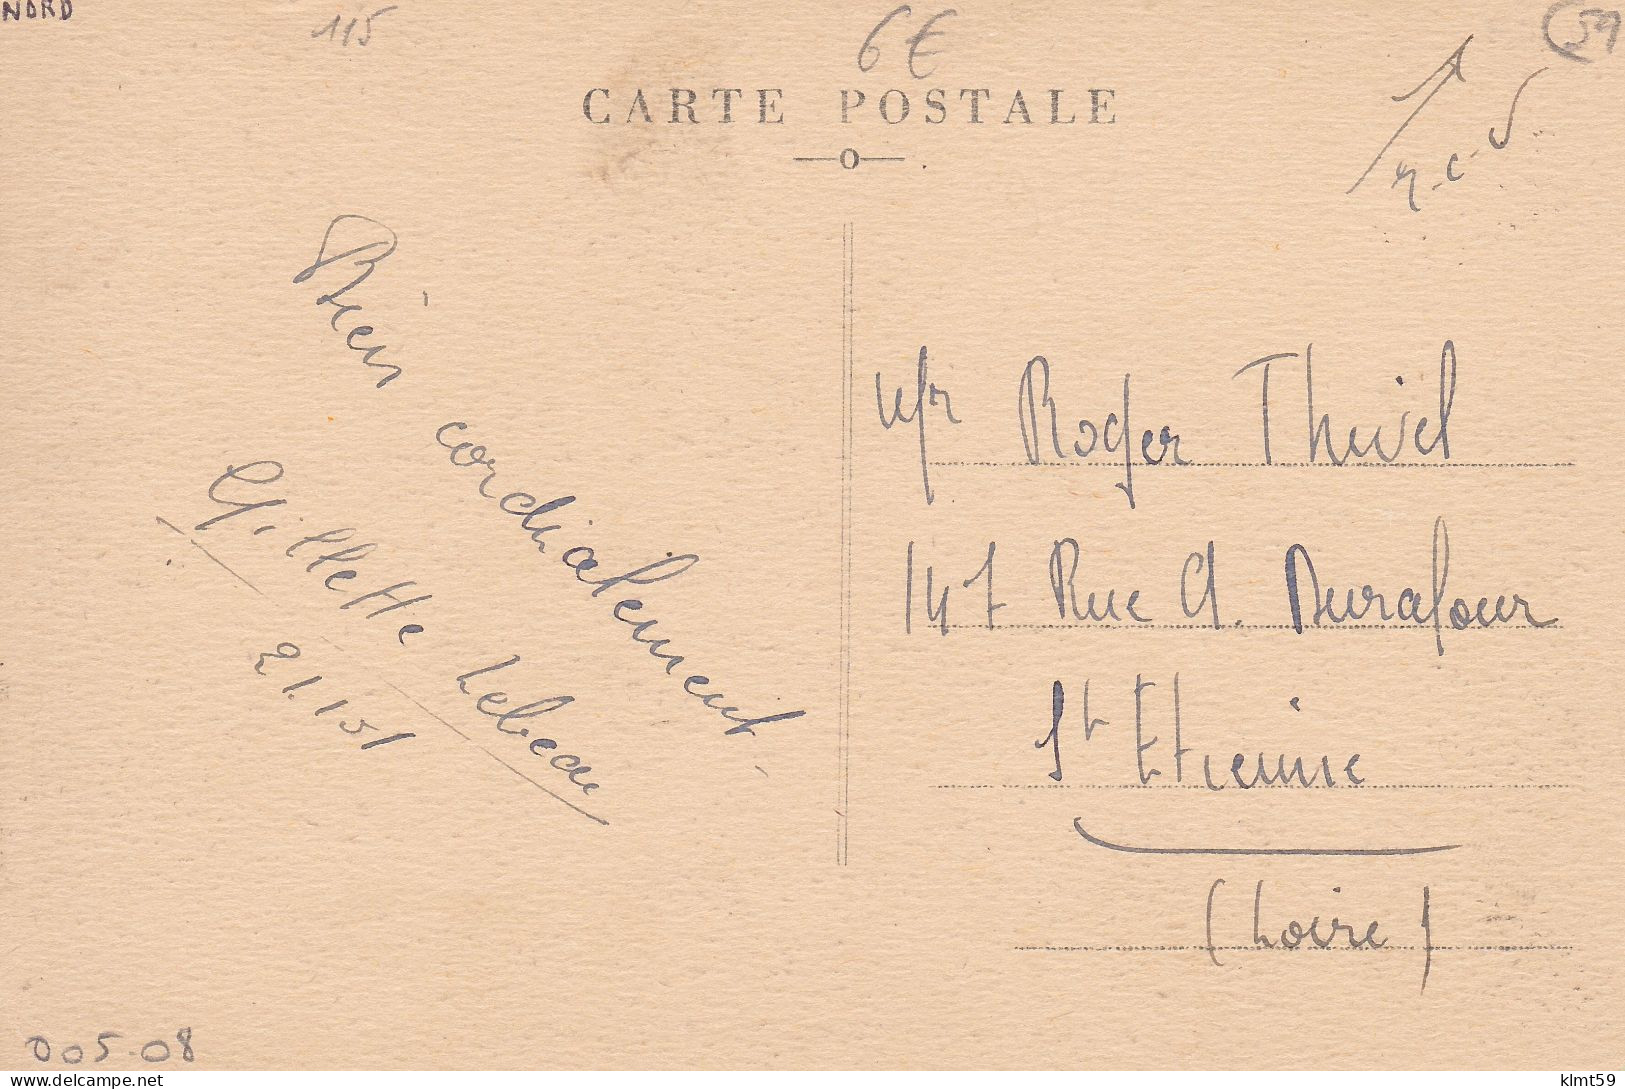 NORD
115
6€
59
CARTE POSTALE
Bien cordialement.
Gillette Lebeau
21.1.51
Mr Roger Thivel
147 Rue A. Durafour
St Etienne
(Loire)
005-08
delcampe.net
klmt59